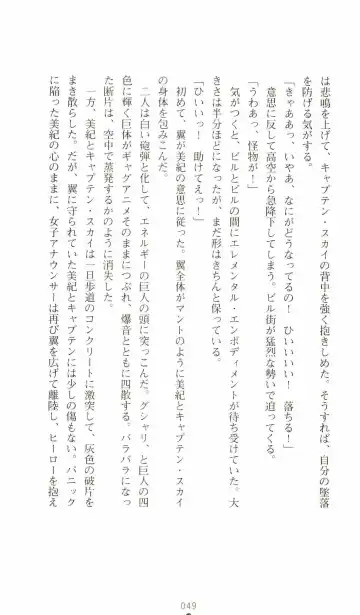 は悲鳴を上げて、キャプテン・スカイの背中を強く抱きしめた。そうすれば、自分の墜落
を防げる気がする。
「きゃああっ、いやあ、なにがどうなってるの！　ひいいいい！　落ちる！」
意思に反して高空から急降下してしまう。ビル街が猛烈な勢いで迫ってくる。
「うわあっ、怪物が！」
気がつくと、ビルとビルの間にエレメンタル・エンボディメントが待ち受けていた。大
きさは半分ほどになったが、まだ形はきちんと保っている。
「ひいいっ！　助けてえっ！」
初めて、翼が美紀の意思に従った。翼全体がマントのように美紀とキャプテン・スカイ
の身体を包みこんだ。
二人は白い砲弾と化して、エネルギーの巨人の頭に突っこんだ。グシャリ、と巨人の四
色に輝く巨体がギャグアニメそのままにつぶれ、爆音とともに四散する。バラバラになっ
た断片は、空中で蒸発するかのように消失した。
一方、美紀とキャプテン・スカイは一旦歩道のコンクリートに激突して、灰色の破片を
まき散らした。だが、翼に守られていた美紀とキャプテンには少しの傷もない。パニック
に陥った美紀の心のままに、女子アナウンサーは再び翼を広げて離陸し、ヒーローを抱え
049